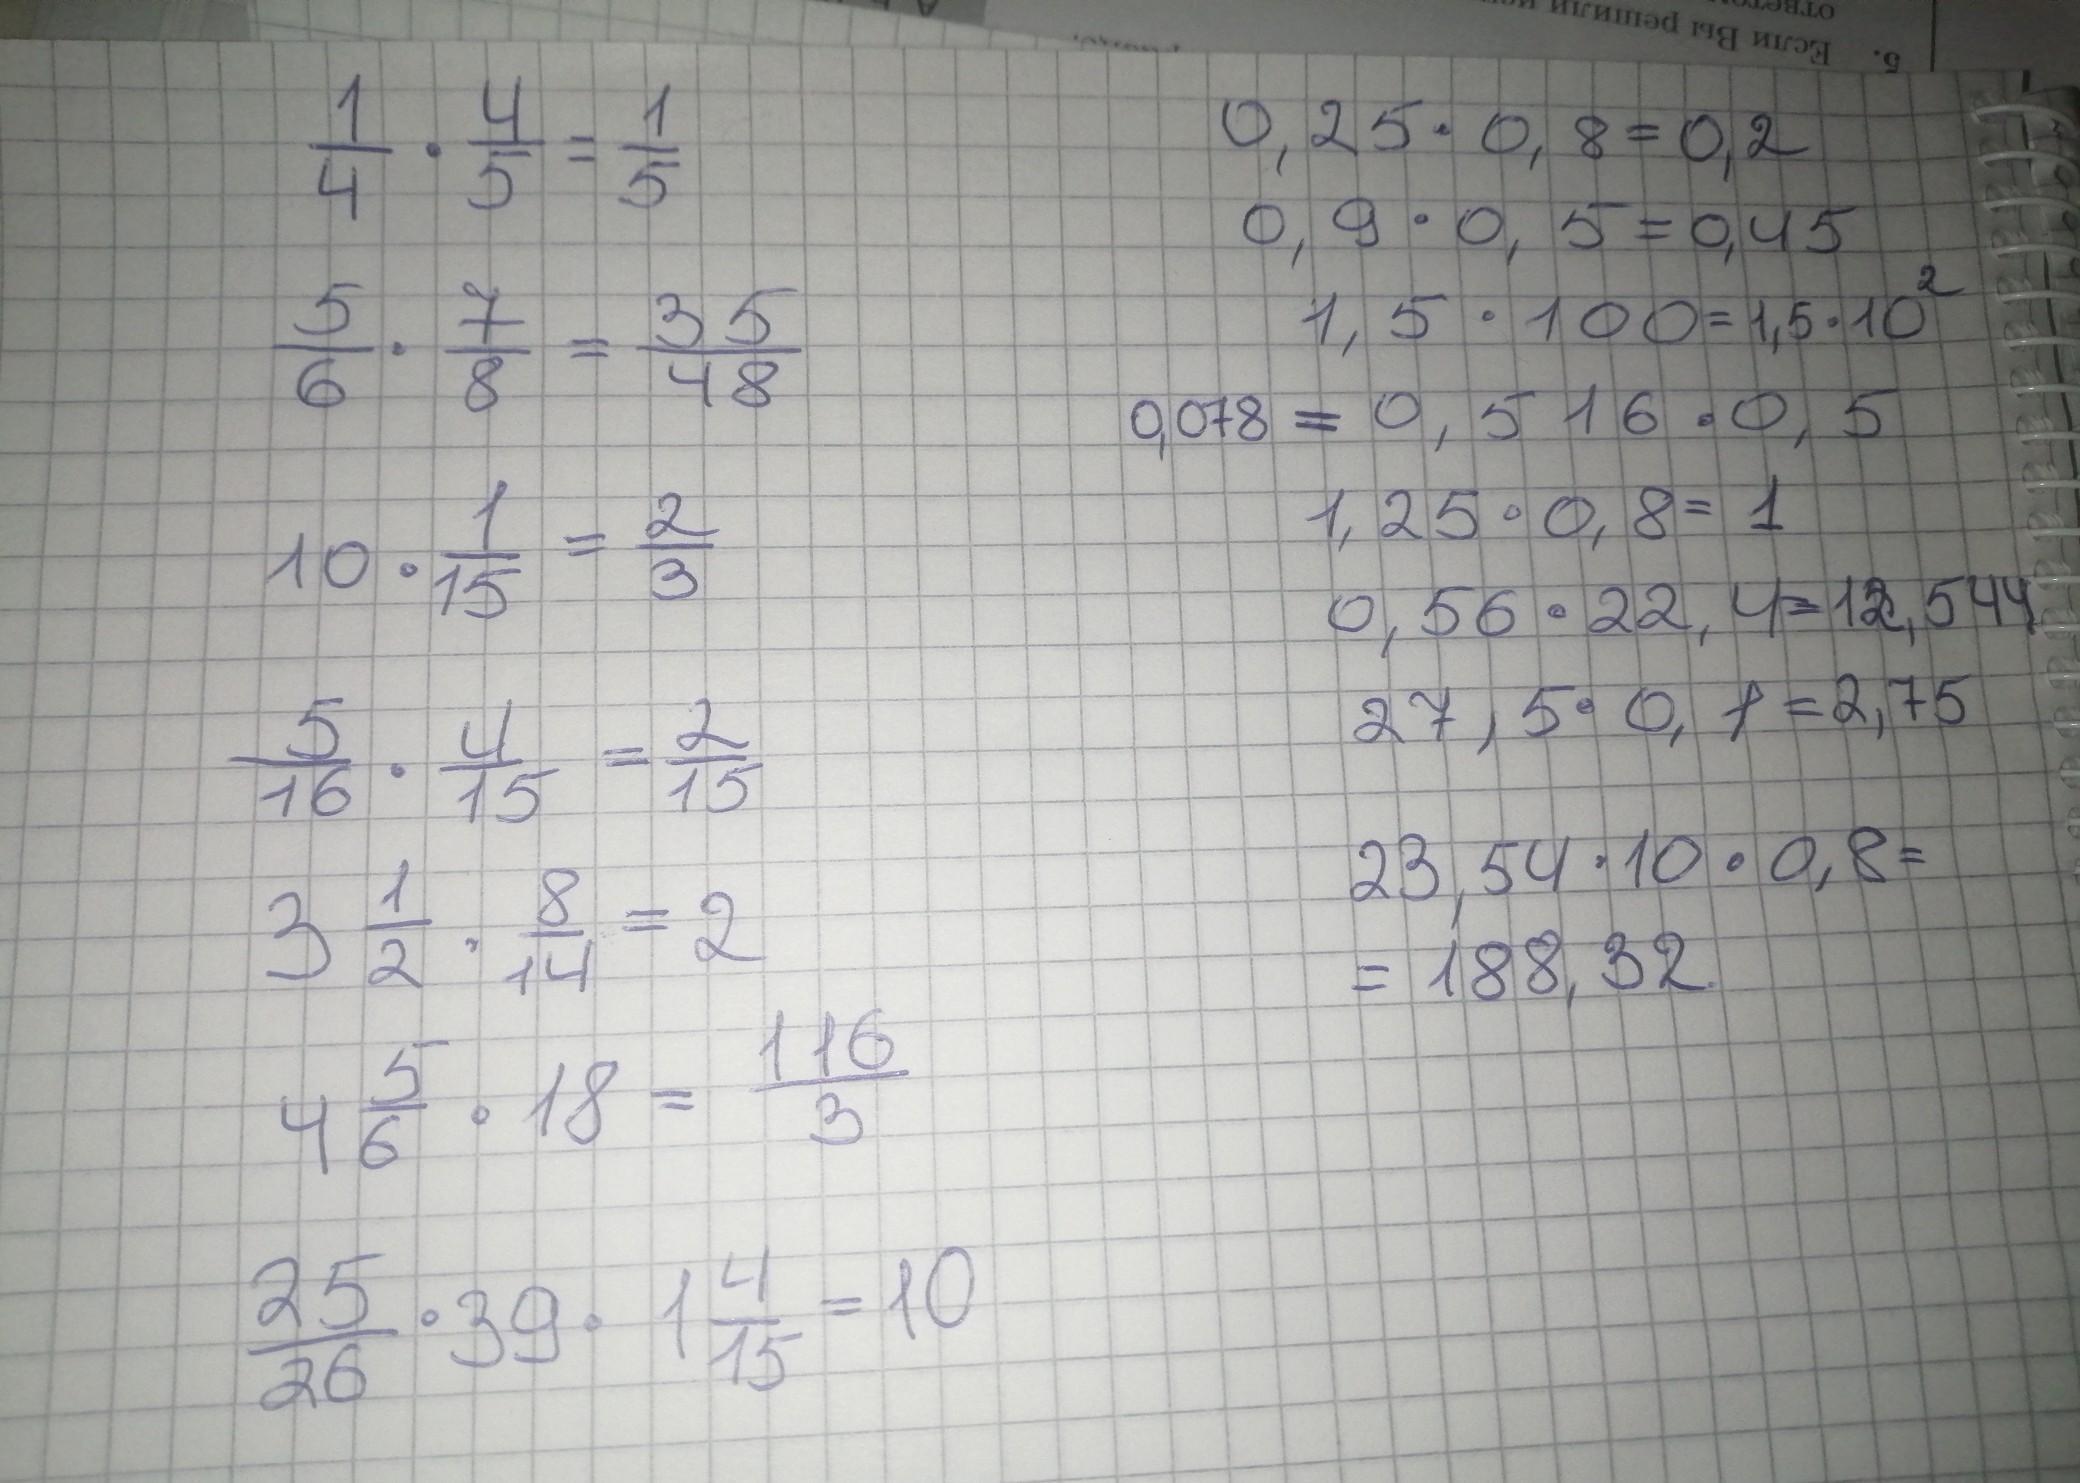 5. Если Вы решили
1/4 · 4/5 = 1/5
5/6 · 7/8 = 35/48
10 · 1/15 = 2/3
5/16 · 4/15 = 2/15
3 1/2 · 8/14 = 2
4 5/6 · 18 = 116/3
25/26 · 39 · 1 4/15 = 10
0,25 · 0,8 = 0,2
0,9 · 0,5 = 0,45
1,5 · 100 = 1,5 · 10²
0,078 = 0,516 · 0,5
1,25 · 0,8 = 1
0,56 · 22,4 = 12,544
27,5 · 0,1 = 2,75
23,54 · 10 · 0,8 =
= 188,32